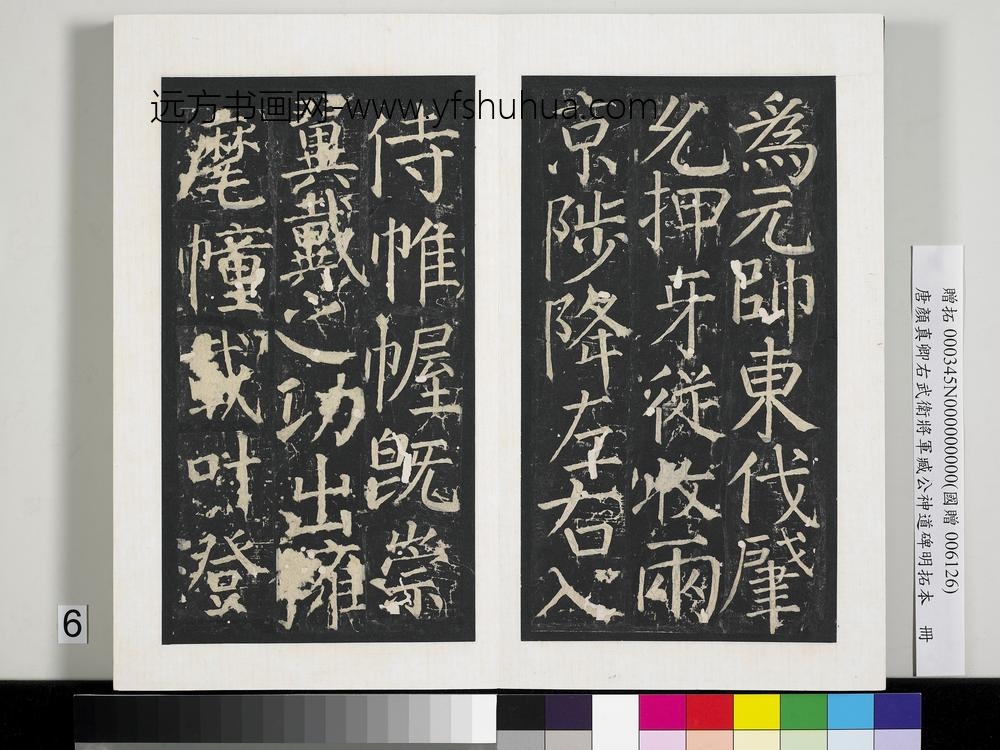 远方书画网-www.yfshuhua.com
為元帥東伐肇
允押牙從收兩
京陟降左右入
侍帷幄既崇
翼戴之功出擁
麾幢載叶澄
贈拓 000345N000000000(國贈 006126)
唐顏真卿右武衛將軍臧公神道碑明拓本 冊
6